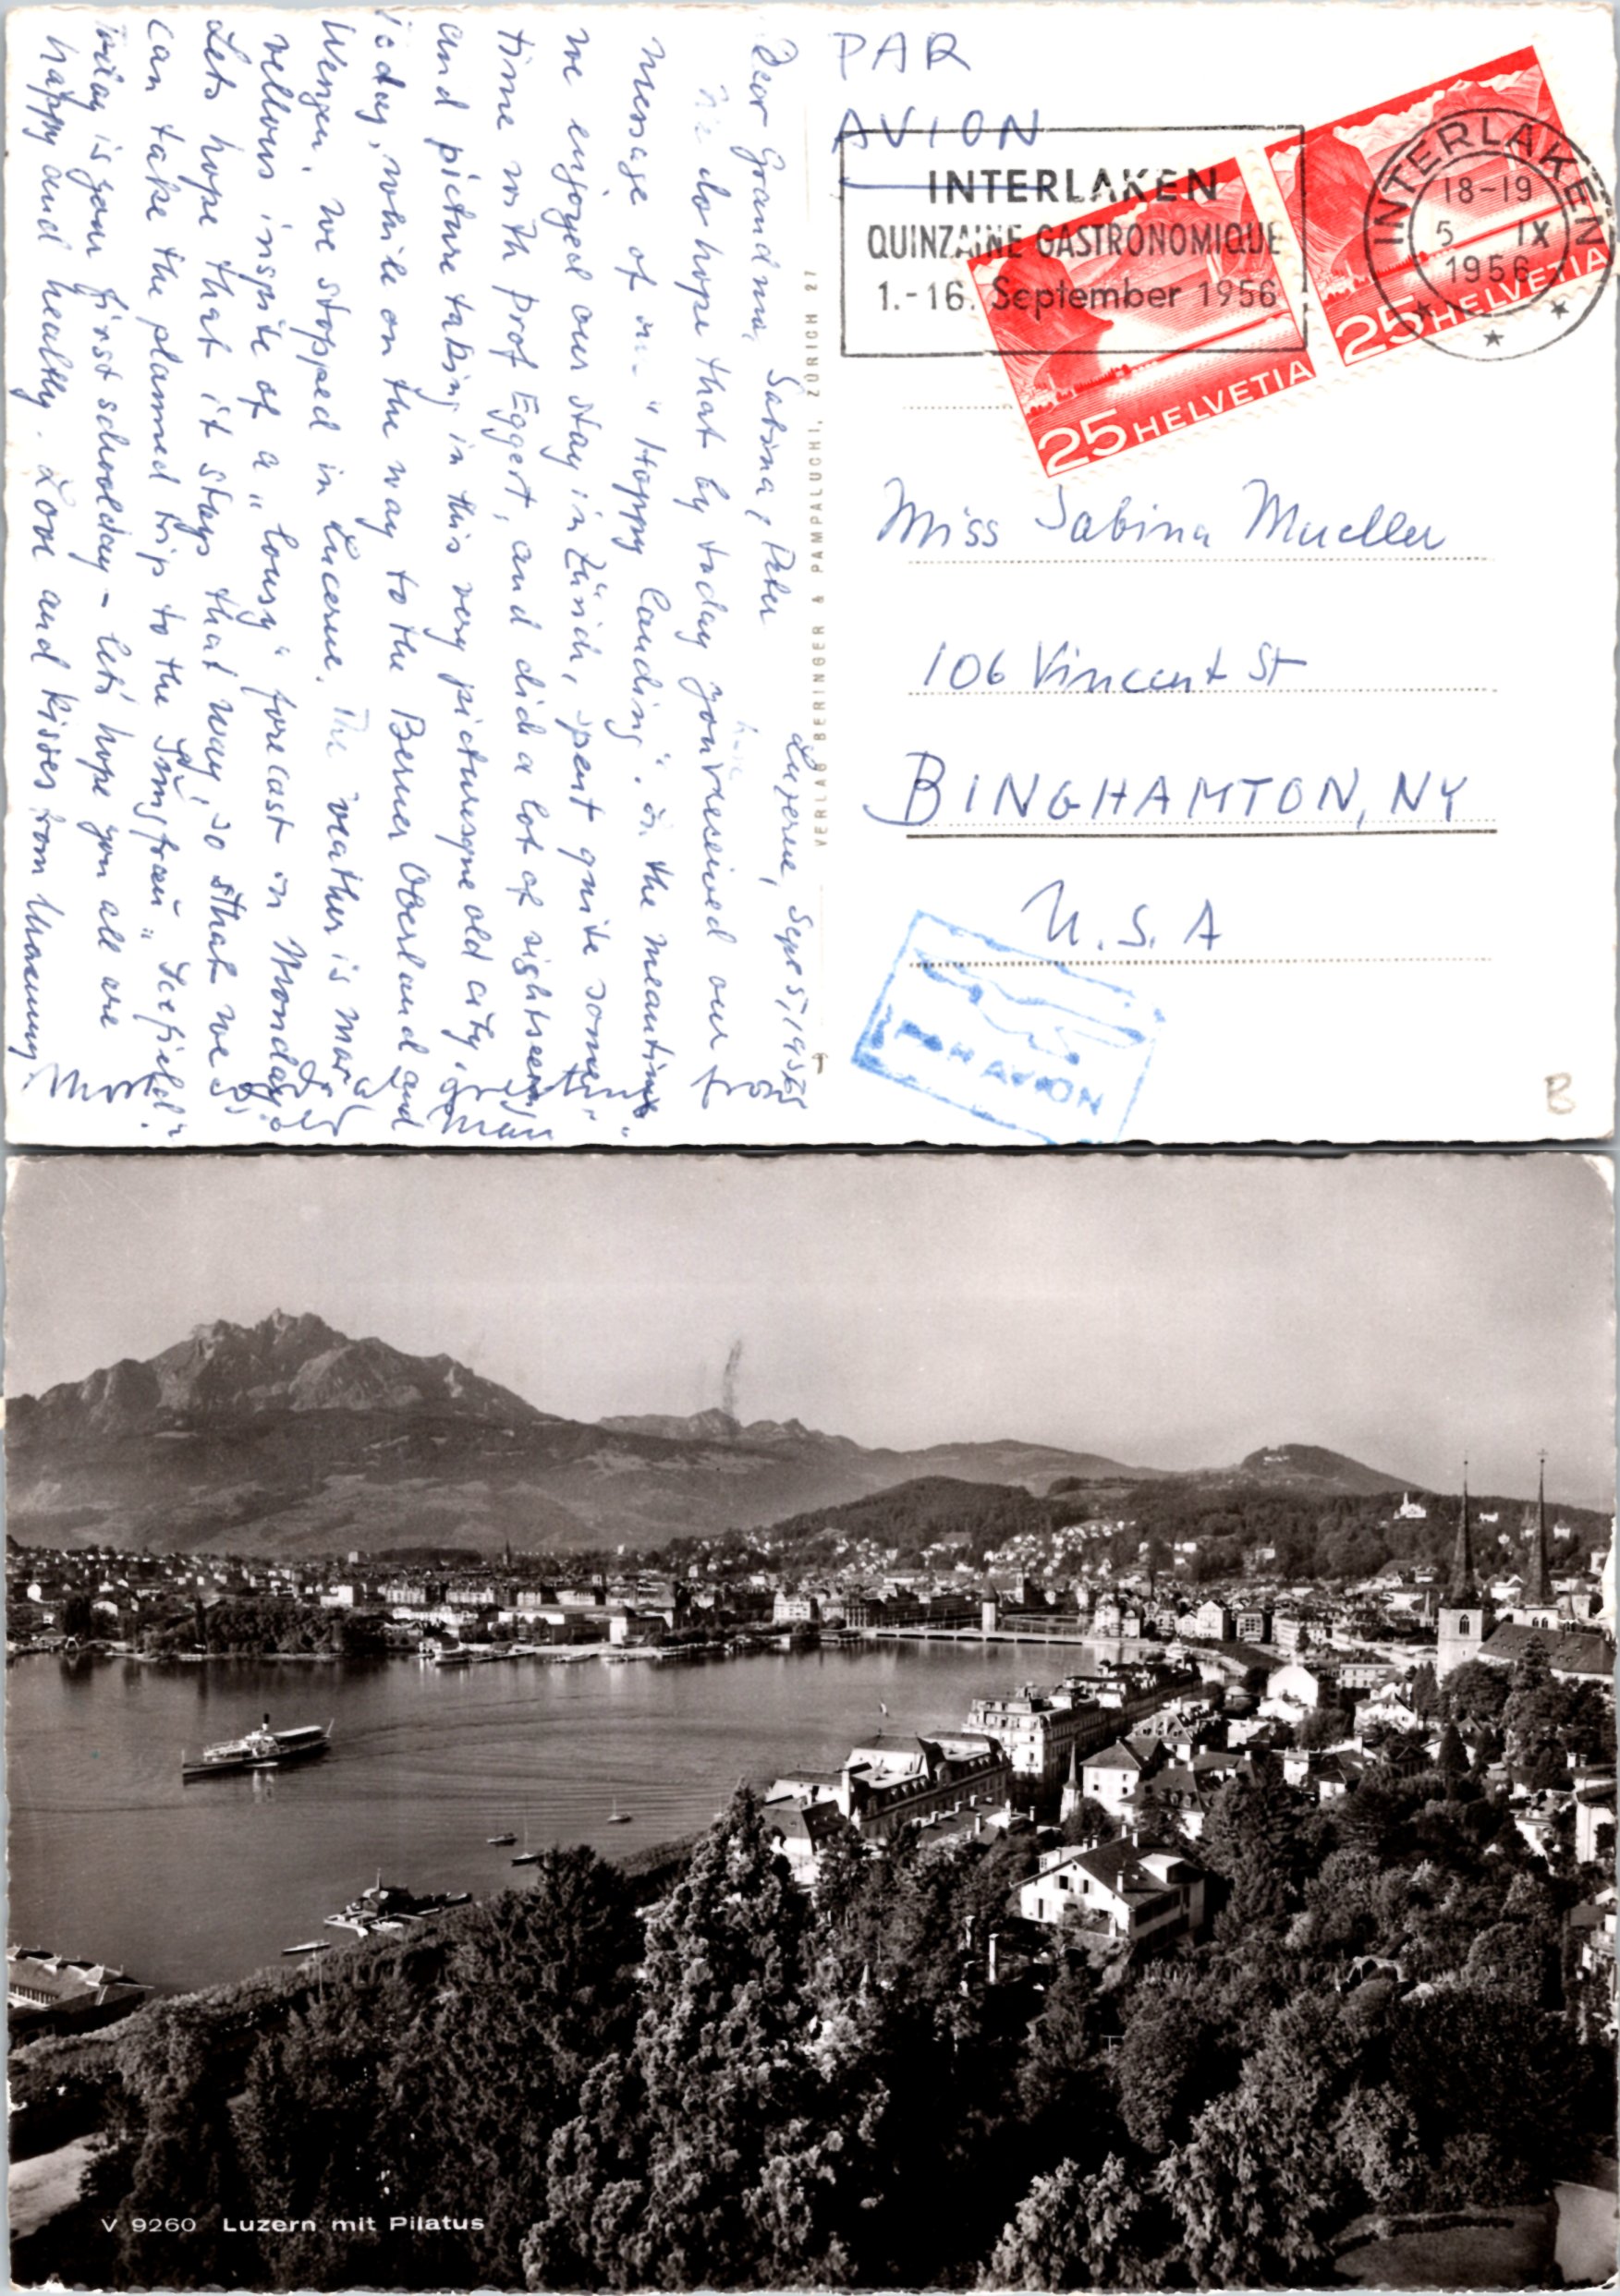 PAR
AVION
INTERLAKEN
QUINZAINE GASTRONOMIQUE
1.-16. September 1956
INTERLAKEN
18-19
5 IX
1956
25 HELVETIA
25 HELVETIA
Miss Sabina Mueller
106 Vincent St
BINGHAMTON, NY
U.S.A
PAR AVION
B
VERLAG BERINGER & PAMPALUCHI, ZÜRICH
Luzerne, Sept 5, 1956
Dear Grandma, Sabina, Peter
We do hope that by today you received our
message of our "Happy landing". In the meantime
we enjoyed our stay in Zürich, spent quite some
time with Prof Eggert, and did a lot of sightseeing
and picture taking in this very picturesque old city.
Today, while on the way to the Berner Oberland and
Wengen, we stopped in Lucerne. The weather is mar
vellous inspite of a "lousy" forecast on Monday.
Lets hope that it stays that way, so that we
can take the planned trip to the "Jungfrau"
Today is your first schoolday - let's hope you all are
happy and healthy. Love and kisses from Mommy
V 9260 Luzern mit Pilatus